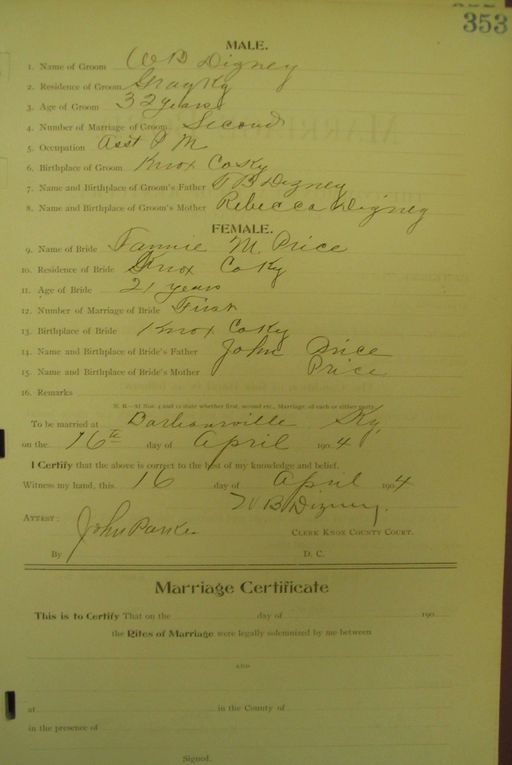 353
MALE.
1. Name of Groom W B Dizney
2. Residence of Groom Gray Ky
3. Age of Groom 32 years
4. Number of Marriage of Groom Second
5. Occupation Asst P M
6. Birthplace of Groom Knox Co Ky
7. Name and Birthplace of Groom's Father T B Dizney
8. Name and Birthplace of Groom's Mother Rebecca Dizney
FEMALE.
9. Name of Bride Fannie M. Price
10. Residence of Bride Knox Co Ky
11. Age of Bride 21 years
12. Number of Marriage of Bride First
13. Birthplace of Bride Knox Co Ky
14. Name and Birthplace of Bride's Father John Price
15. Name and Birthplace of Bride's Mother Price
16. Remarks
N. B.—At Nos. 4 and 12 state whether first, second etc., Marriage of each or either party.
To be married at Barbourville Ky.
on the 16th day of April 1904
I Certify that the above is correct to the best of my knowledge and belief.
Witness my hand, this 16 day of April 1904
W B Dizney.
ATTEST: John Parker
CLERK KNOX COUNTY COURT.
By D. C.
Marriage Certificate
This is to Certify That on the day of 190
the Rites of Marriage were legally solemnized by me between
AND
at in the County of
in the presence of
Signed.